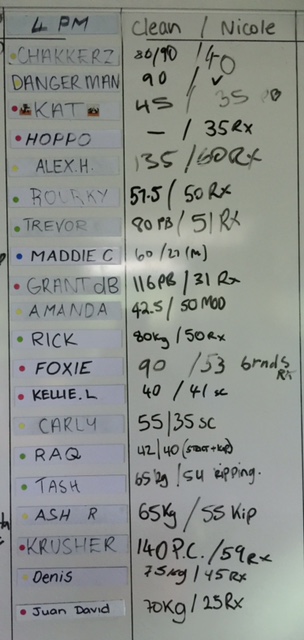 4 PM Clean / Nicole
CHAKKERZ 80/90 / 40
DANGERMAN 90 / ✓
KAT 45 / 35
HOPPO — / 35 Rx
ALEX.H. 135 / 60 Rx
ROURKY 57.5 / 50 Rx
TREVOR 80 PB / 51 Rx
MADDIE C 60 / 27 (M)
GRANT dB 116 PB / 31 Rx
AMANDA 42.5 / 50 MOD
RICK 80kg / 50 Rx
FOXIE 90 / 53 6rnds Rx
KELLIE.L 40 / 41 sc
CARLY 55 / 35 sc
RAQ 42 / 40
TASH 65kg / 54 ripping.
ASH R 65kg / 55 Kip
KRUSHER 140 P.C. / 59 Rx
Denis 75kg / 45 Rx
Juan David 70kg / 25 Rx